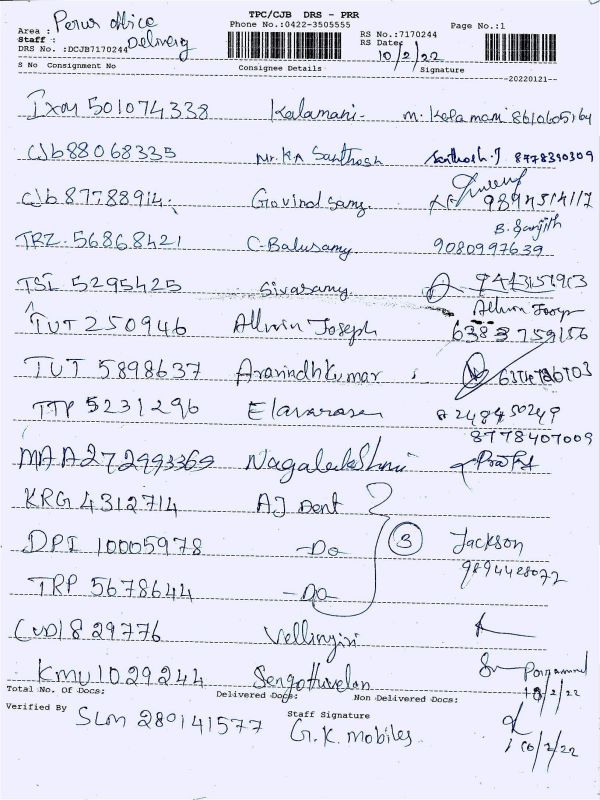 TPC/CJB DRS - PRR
Phone No.:0422-3505555
Page No.:1
Area : Perur office
Staff : Delivery
DRS No. :DCJB7170244
RS No.:7170244
RS Date: 10/2/22
S No Consignment No Consignee Details Signature
20220121
IXM 501074338 Kalamani - m. Kalamani
CJb 88068335 Mr. K.A Santhosh Santhosh.J 8778390309
CJb 87788914 Govind samy
B. Sanjith
TRZ 56868421 C. Balusamy 9080997639
TSI 5295425 Sivasamy
Allwin Josep
TUT 250946 Allwin Joseph 6383759156
TUT 5898637 Aravindhkumar
TTP 5231296 Elavarasan
8778407009
MAA 272993369 Nagalakshmi
KRG 4312714 AJ Dent
DPI 10005978 -Do 3 Jackson
9894428072
TRP 5678644 -Do
CUD1829776 Vellingiri
KMU1029244 Sengottuvelan
Total No. Of Docs: Delivered Docs: Non Delivered Docs:
10/2/22
Verified By SLM 280141577 Staff Signature G.K. mobiles
10/2/22